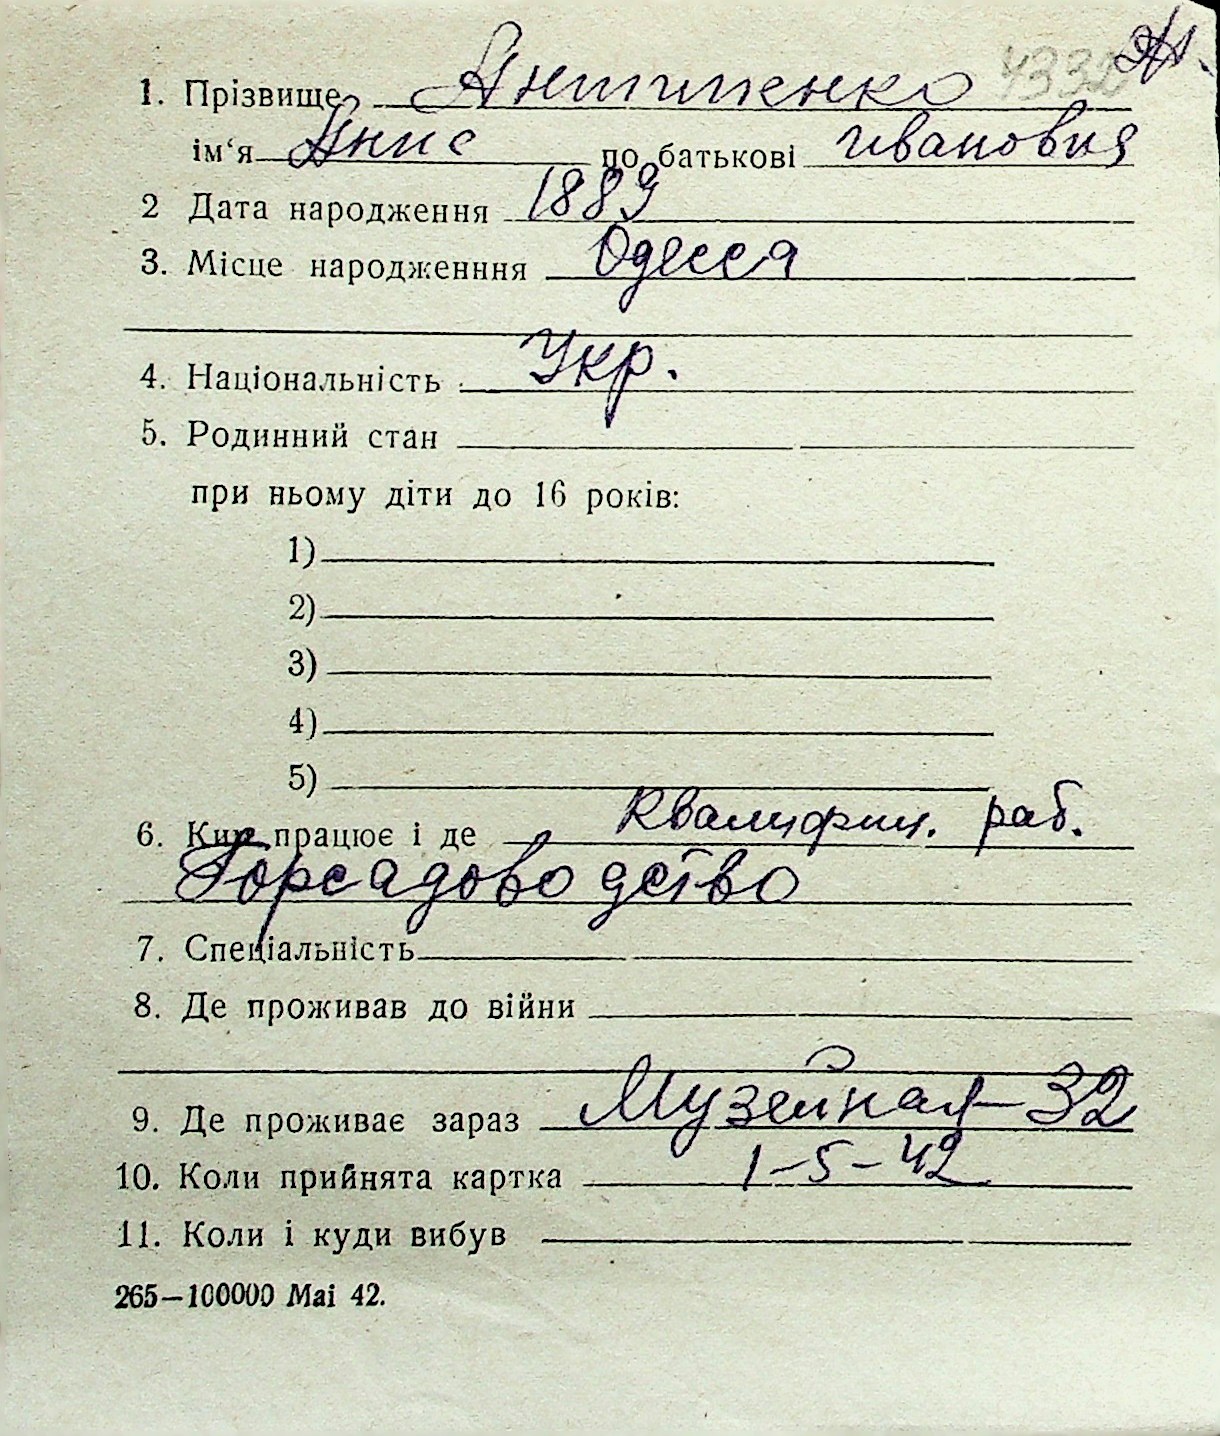 4332 Ж.
1. Прізвище Антипенко
ім‘я Анис по батькові Ивановия
2 Дата народження 1889
3. Місце народженння Одесса
4. Національність Укр.
5. Родинний стан
при ньому діти до 16 років:
1)
2)
3)
4)
5)
6. Ким працює і де Квалифиц. раб.
Горсадоводство
7. Спеціальність
8. Де проживав до війни
9. Де проживає зараз Музейная-32
10. Коли прийнята картка 1-5-42
11. Коли і куди вибув
265—100000 Маі 42.